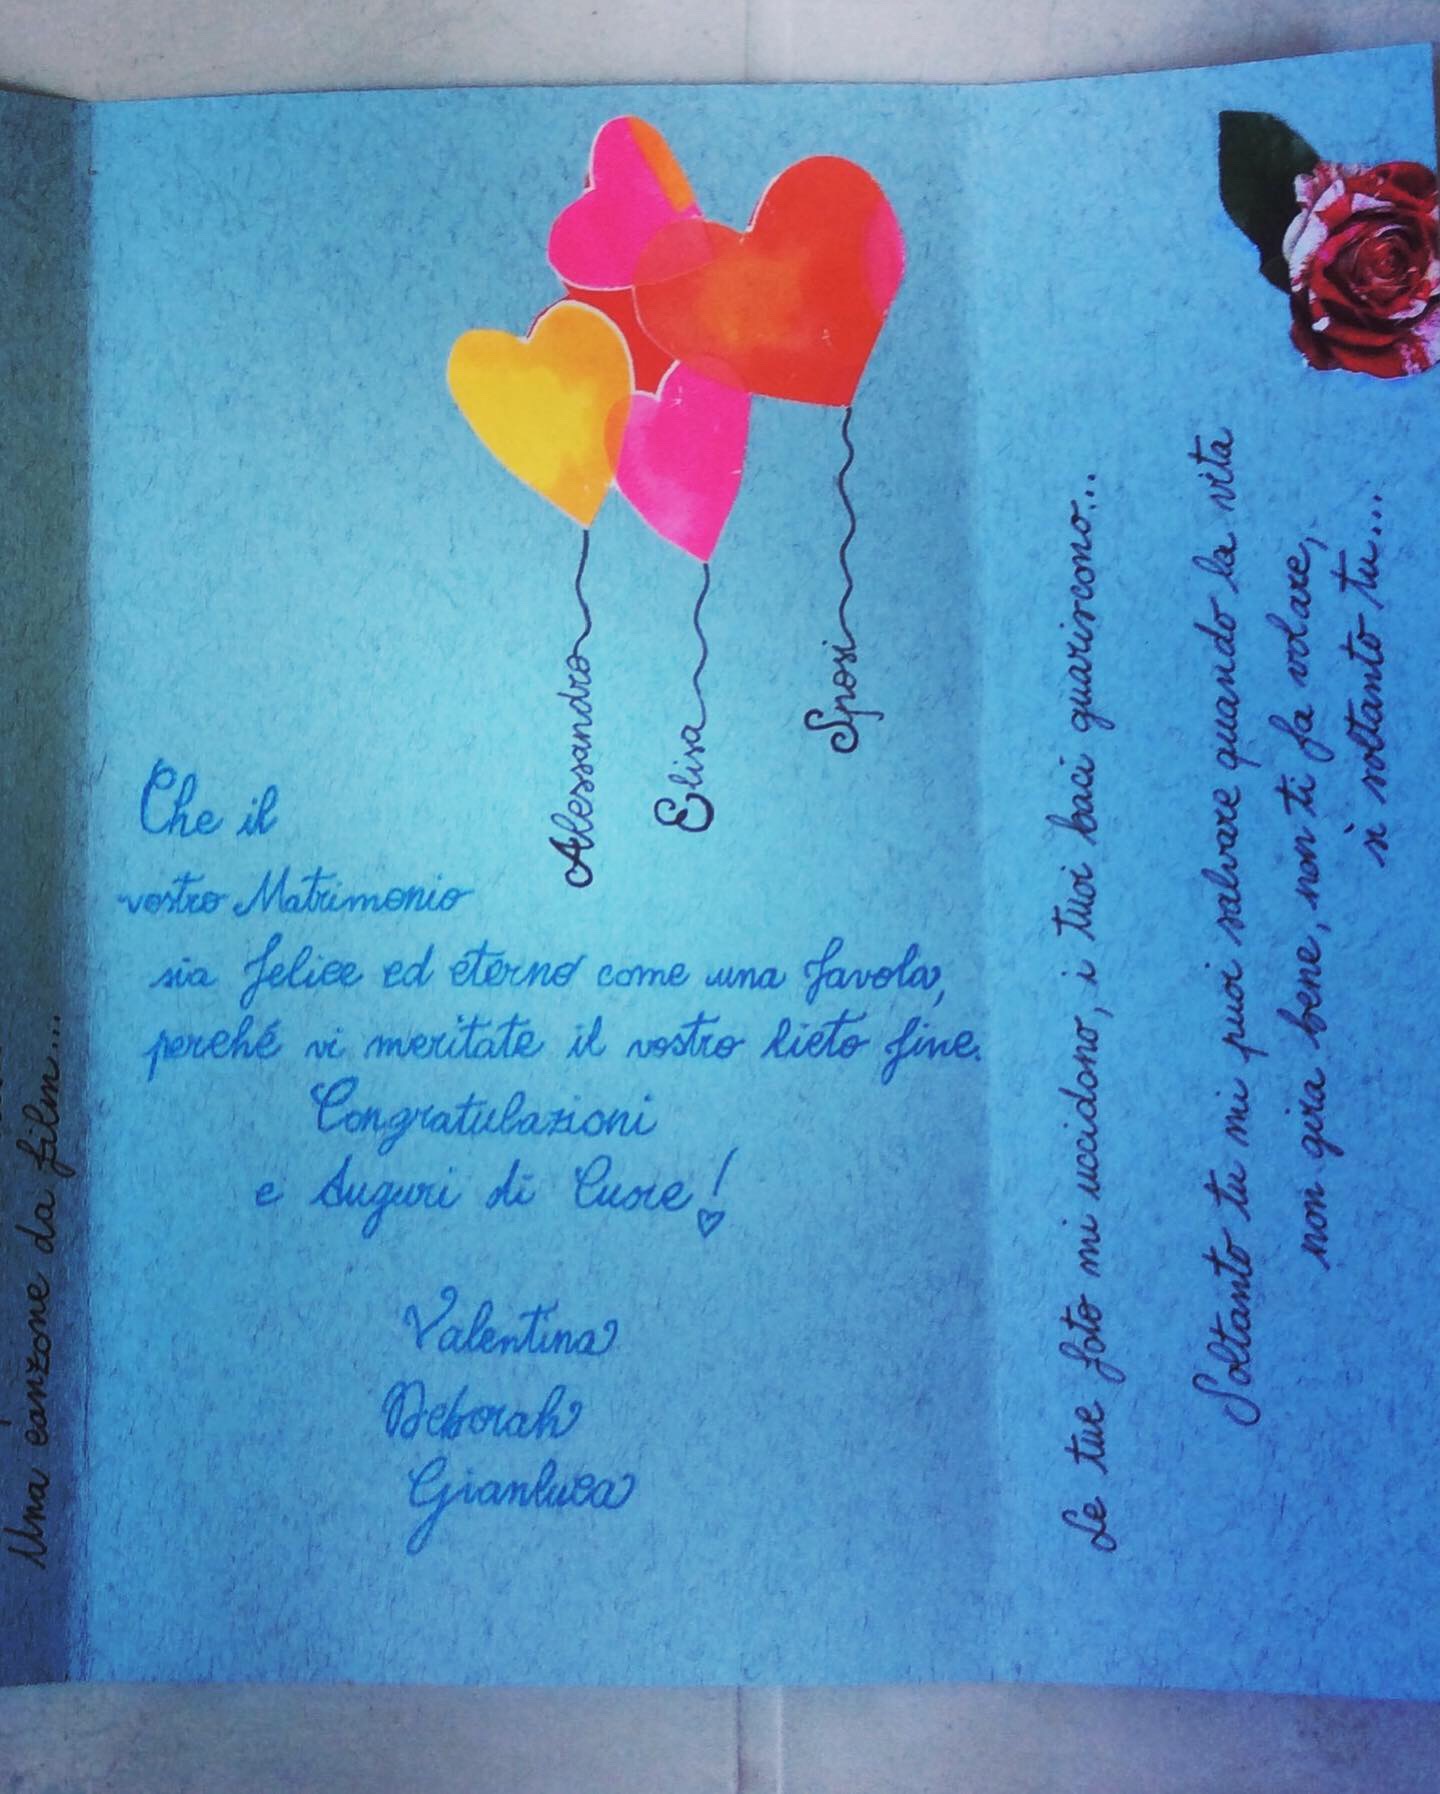 Una canzone da film...
Alessandro
Elisa
Sposi
Che il
vostro Matrimonio
sia felice ed eterno come una favola,
perché vi meritate il vostro lieto fine.
Congratulazioni
e Auguri di Cuore!
Valentina
Deborah
Gianluca
Le tue foto mi uccidono, i tuoi baci guariscono...
Soltanto tu mi puoi salvare quando la vita
non gira bene, non ti fa volare,
sì soltanto tu...